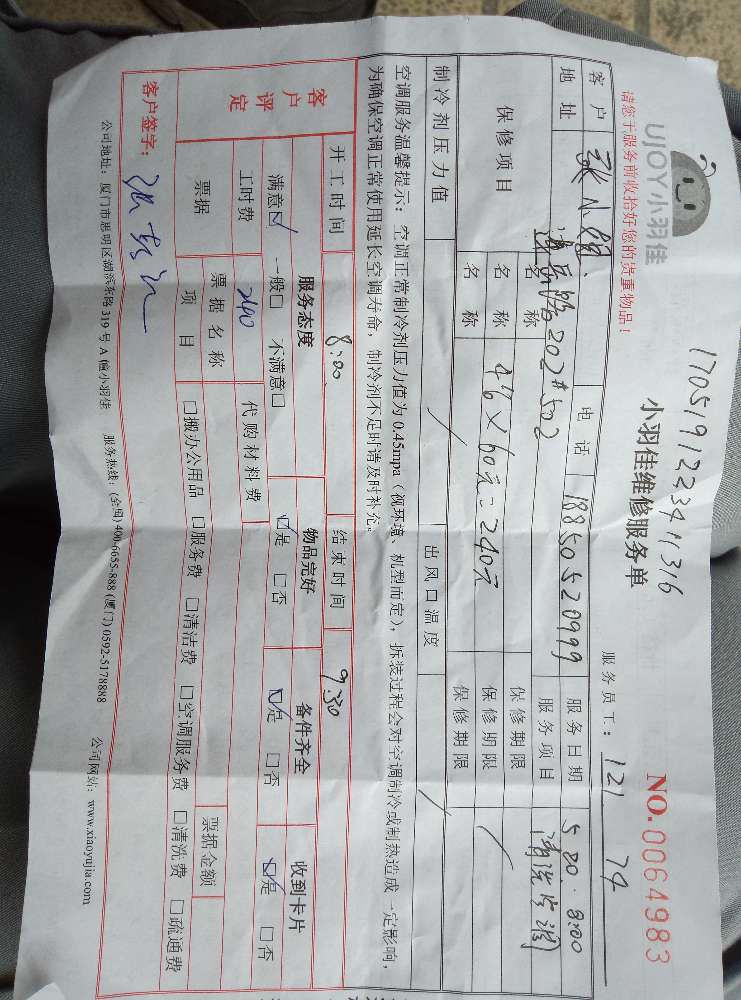 请您于服务前收拾好您的贵重物品！
UJOY小羽佳
1705191223411316
小羽佳维修服务单
NO.0064983
服务员工：121 74
客户 张小姐 电话 18850520999 服务日期 5.20.8:00
地址 202#502 服务项目 清洗空调
保修项目 名称 保修期限
名称 4台×60元=240元 保修期限
名称 保修期限
制冷剂压力值 出风口温度
空调服务温馨提示：空调正常制冷剂压力值为0.45mpa（视环境、机型而定），拆装过程会对空调制冷或制热造成一定影响，
为确保空调正常使用延长空调寿命，制冷剂不足时请及时补充。
开工时间 8:00 结束时间 9:30
客户评定
服务态度 物品完好 备件齐全 收到卡片
满意☑ 一般□ 不满意□ ☑是 □否 ☑是 □否 ☑是 □否
工时费 240 代购材料费
票据 票据名称 票据金额
项目 □搬办公用品 □服务费 □清洁费 □空调服务费 □清洗费 □疏通费
客户签字：
公司地址：厦门市思明区湖滨东路319号A幢小羽佳 服务热线：(全国)400-6655-888 (厦门)0592-5178888 公司网站：www.xiaoyujia.com